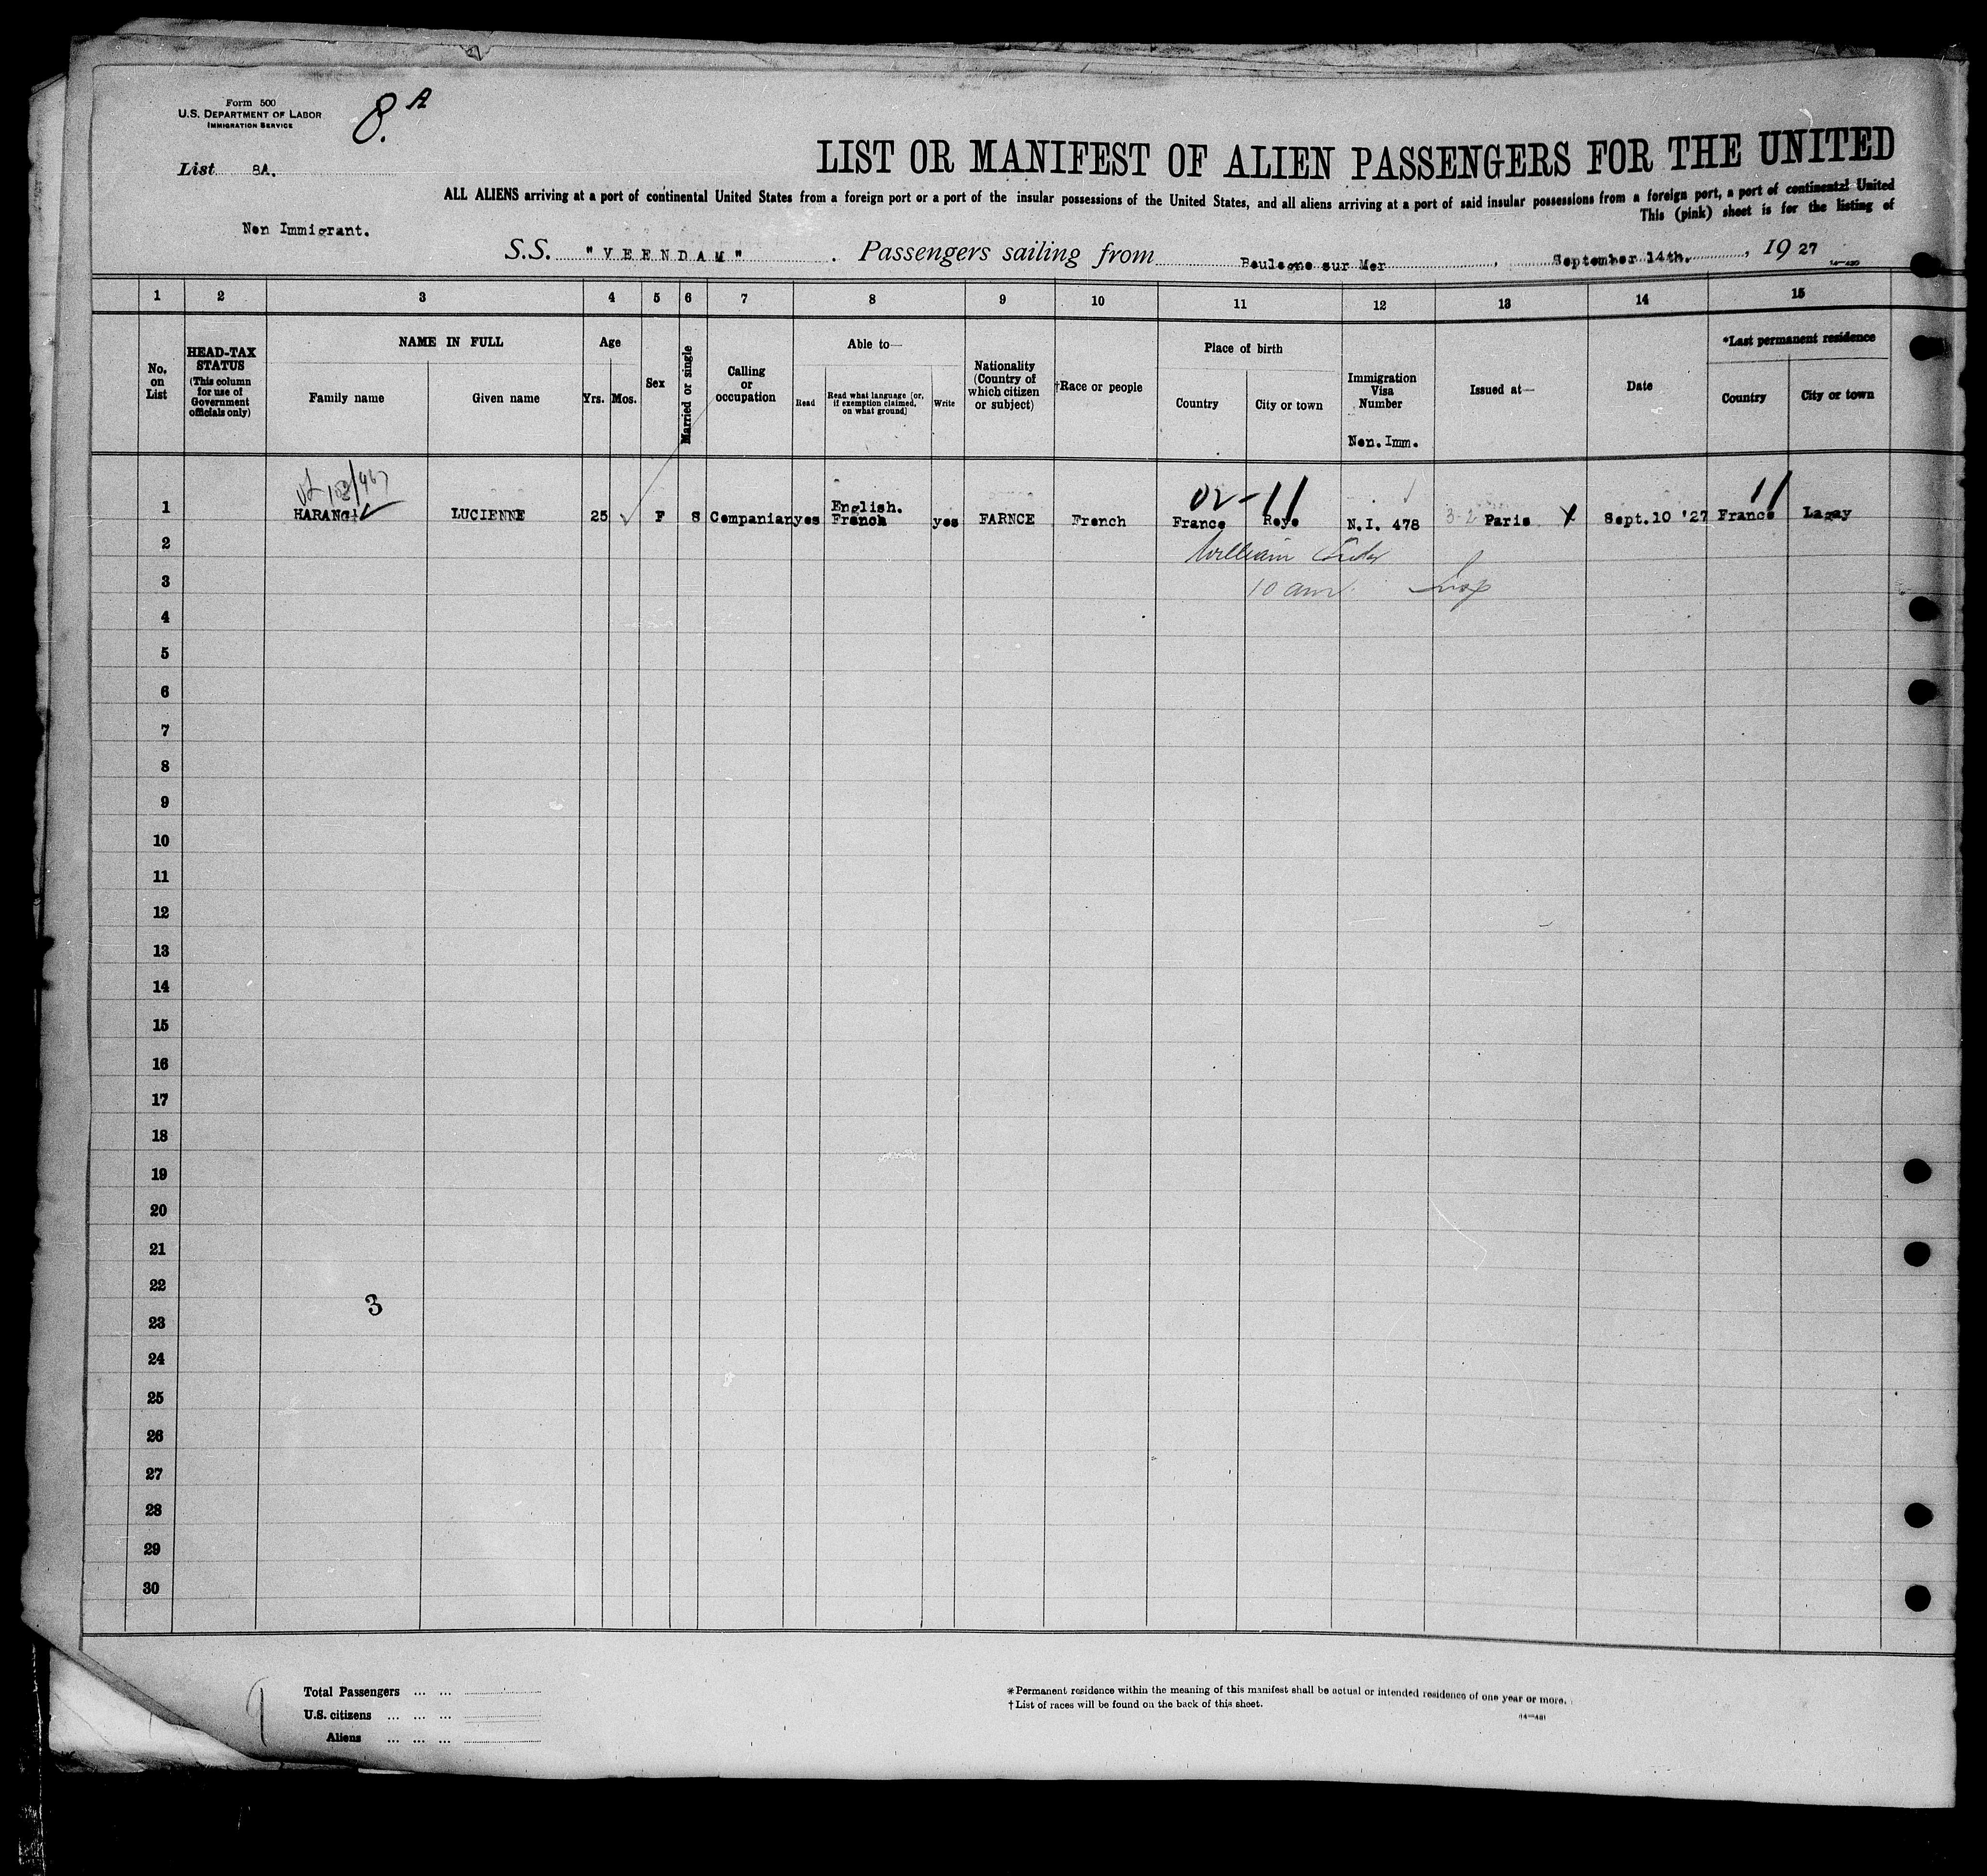 Form 500
U.S. DEPARTMENT OF LABOR
IMMIGRATION SERVICE
8.A
List 8A.
LIST OR MANIFEST OF ALIEN PASSENGERS FOR THE UNITED
ALL ALIENS arriving at a port of continental United States from a foreign port or a port of the insular possessions of the United States, and all aliens arriving at a port of said insular possessions from a foreign port, a port of continental United
This (pink) sheet is for the listing of
Non Immigrant.
S.S. "VEENDAM". Passengers sailing from Boulogne sur Mer, September 14th., 1927
1 2 3 4 5 6 7 8 9 10 11 12 13 14 15
No. on List
HEAD-TAX STATUS (This column for use of Government officials only)
NAME IN FULL
Family name
Given name
Age
Yrs. Mos.
Sex
Married or single
Calling or occupation
Able to—
Read
Read what language [or, if exemption claimed, on what ground]
Write
Nationality (Country of which citizen or subject)
†Race or people
Place of birth
Country
City or town
Immigration Visa Number
Non. Imm.
Issued at—
Date
*Last permanent residence
Country
City or town
02-11 11
1 HARANG LUCIENNE 25 F S Companian yes English. French yes FARNCE French France Roye N.I. 478 3-2 Paris Sept.10 '27 France Lagay
2 William
3 10 am Insp
4
5
6
7
8
9
10
11
12
13
14
15
16
17
18
19
20
21
22
3
23
24
25
26
27
28
29
30
Total Passengers ... ...
U.S. citizens ... ... ...
Aliens ... ... ...
*Permanent residence within the meaning of this manifest shall be actual or intended residence of one year or more.
†List of races will be found on the back of this sheet.